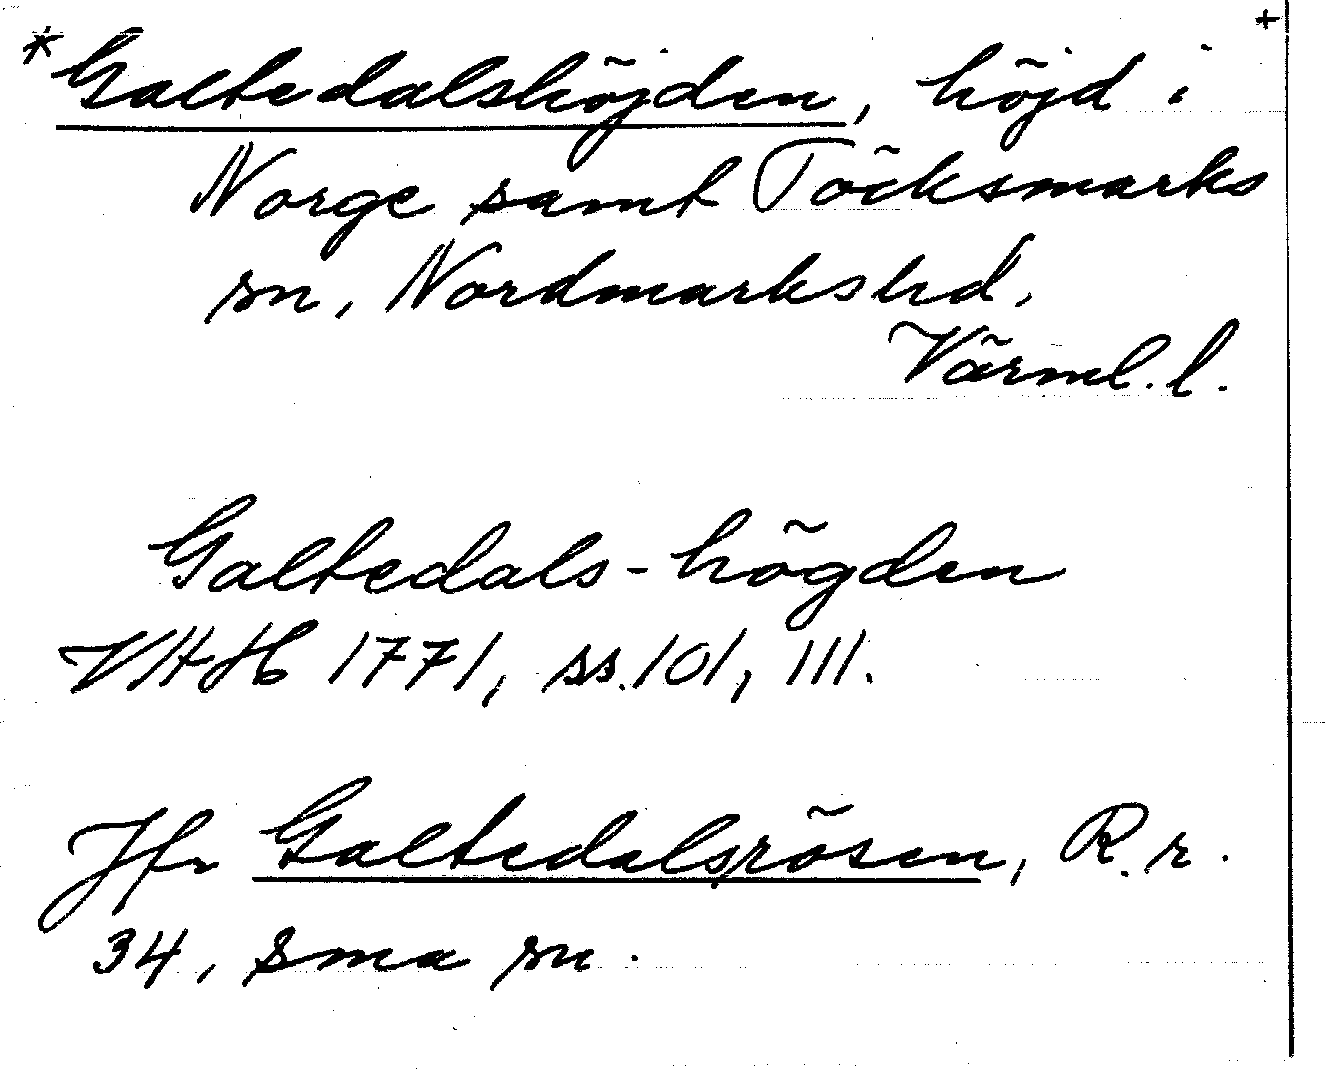 +
*Galtedalshöjden, höjd i
Norge samt Töcksmarks
sn, Nordmarks hd,
Värml. l.
Galtedals-högden
VHH 1771, ss. 101, 111.
Jfr Galtedalsrösen, R.r.
34, sma sn.